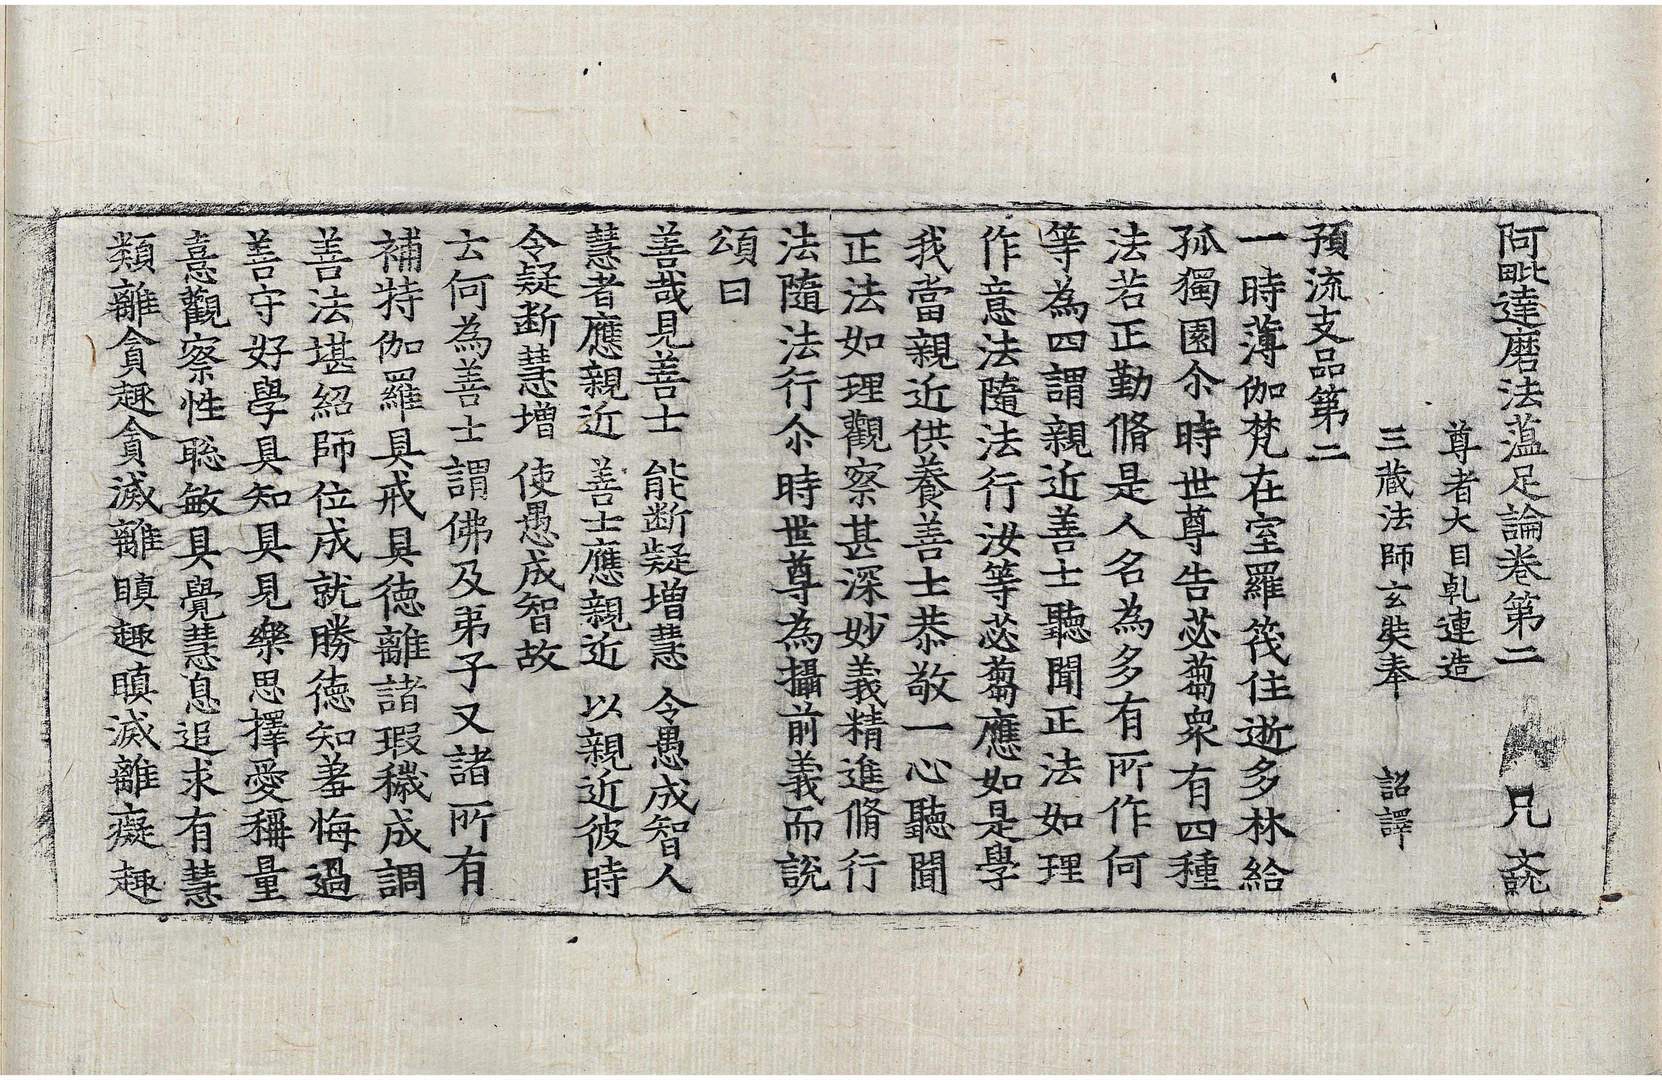 阿毗達磨法蕰足論卷第二 兄 詤
尊者大目乹連造
三蔵法師玄奘奉 詔譯
預流支品第二
一時薄伽梵在室羅筏住逝多林給
孤獨園尒時世尊告苾蒭衆有四種
法若正勤脩是人名為多有所作何
等為四謂親近善士聽聞正法如理
作意法隨法行汝等苾蒭應如是學
我當親近供養善士恭敬一心聽聞
正法如理觀察甚深妙義精進脩行
法隨法行尒時世尊為攝前義而說
頌曰
善哉見善士 能断疑增慧 令愚成智人
慧者應親近 善士應親近 以親近彼時
令疑断慧增 使愚成智故
云何為善士謂佛及弟子又諸所有
補特伽羅具戒具徳離諸瑕穢成調
善法堪紹師位成就勝徳知羞悔過
善守好學具知具見樂思擇愛稱量
憙觀察性聡敏具覺慧息追求有慧
類離貪趣貪滅離瞋趣瞋滅離癡趣